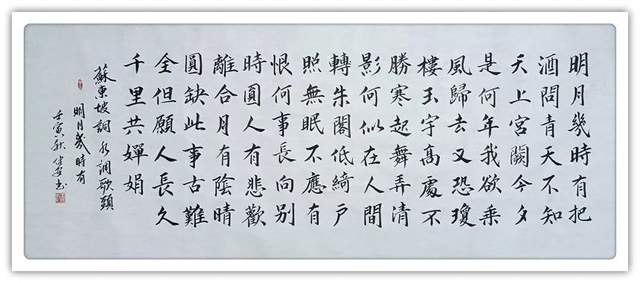 明月幾時有把
酒問青天不知
天上宮闕今夕
是何年我欲乘
風歸去又恐瓊
樓玉宇高處不
勝寒起舞弄清
影何似在人間
轉朱閣低綺戶
照無眠不應有
恨何事長向別
時圓人有悲歡
離合月有陰晴
圓缺此事古難
全但願人長久
千里共嬋娟
蘇東坡詞水調歌頭
明月幾時有
壬寅秋